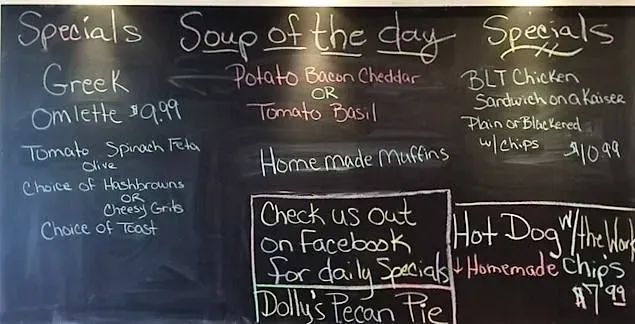 Specials
Greek
Omlette $9.99
Tomato Spinach Feta
olive
Choice of Hashbrowns
OR
Cheesy Grits
Choice of Toast
Soup of the day
Potato Bacon Cheddar
OR
Tomato Basil
Homemade Muffins
Check us out
on Facebook
for daily Specials
Dolly's Pecan Pie
Specials
BLT Chicken
Sandwich on a Kaiser
Plain or Blackened
w/chips $10.99
Hot Dog w/the Work
Homemade Chips
$7.99